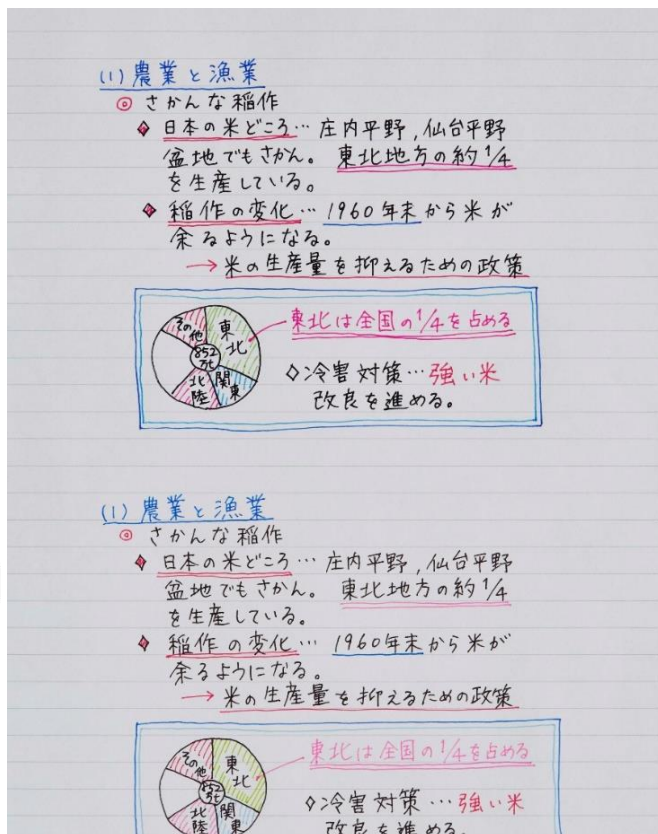 (1) 農業と漁業
◎ さかんな稲作
◆ 日本の米どころ… 庄内平野,仙台平野
盆地でもさかん。 東北地方の約1/4
を生産している。
◆ 稲作の変化… 1960年末から米が
余るようになる。
→ 米の生産量を抑えるための政策
その他
東北
852万t
北陸
関東
東北は全国の1/4を占める
◇冷害対策…強い米
改良を進める。
(1) 農業と漁業
◎ さかんな稲作
◆ 日本の米どころ… 庄内平野,仙台平野
盆地でもさかん。 東北地方の約1/4
を生産している。
◆ 稲作の変化… 1960年末から米が
余るようになる。
→ 米の生産量を抑えるための政策
その他
東北
852万t
北陸
関東
東北は全国の1/4を占める
◇冷害対策…強い米
改良を進める。